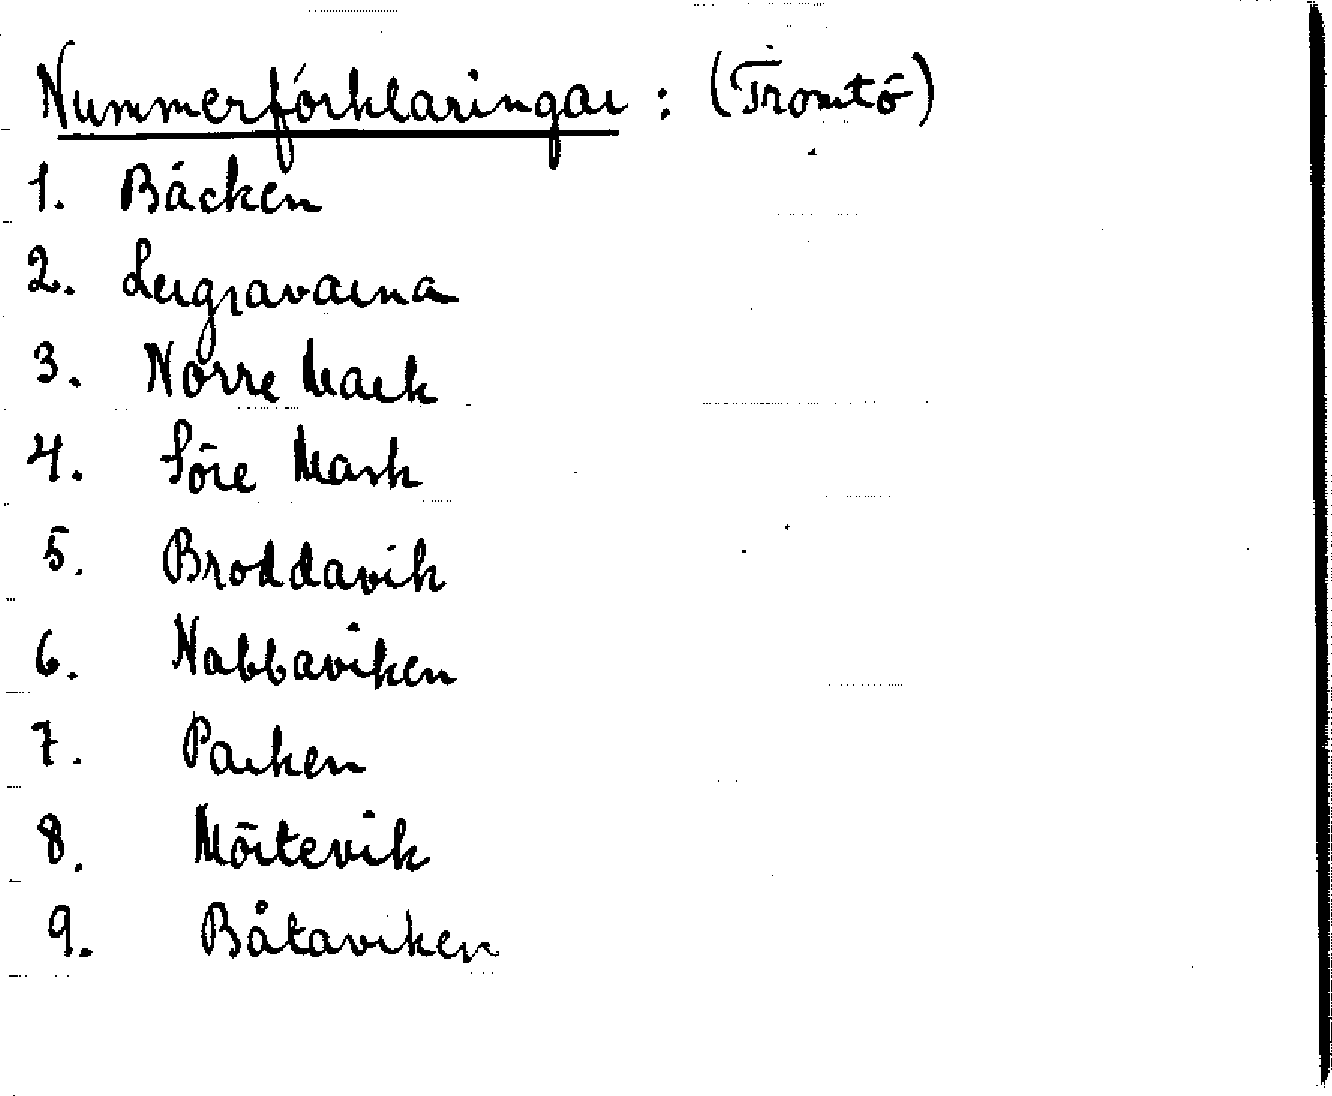 Nummerförklaringar : (Tromtö)
1. Bäcken
2. Lergravarna
3. Norre Mark
4. Söre Mark
5. Broddavik
6. Nabbaviken
7. Parken
8. Mörtevik
9. Båtaviken